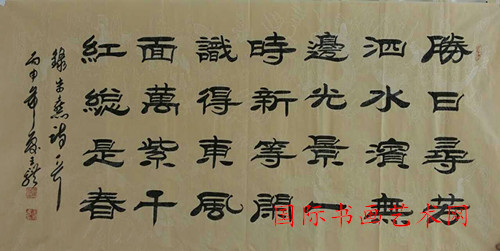 勝日尋芳
泗水濱無
邊光景一
時新等閒
識得東風
面萬紫千
紅總是春
錄朱熹詩一首
丙申年夏
国际书画艺术网